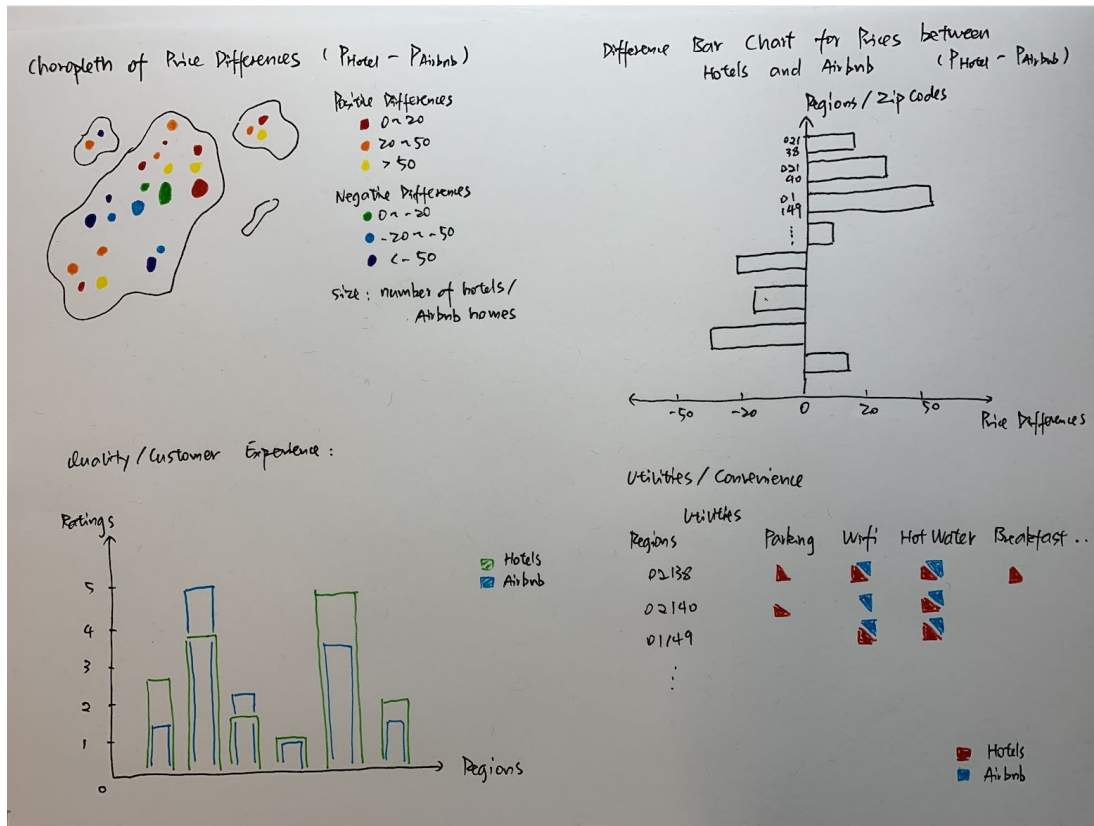 Choropleth of Price Differences (PHotel - PAirbnb)
Positive Differences
0~20
20~50
>50
Negative Differences
0~-20
-20~-50
<-50
Size: number of hotels/
Airbnb homes
Difference Bar Chart for Prices between
Hotels and Airbnb (PHotel - PAirbnb)
Regions/Zip Codes
021
38
021
40
01
149
⋮
-50 -20 0 20 50
Price Differences
Quality/Customer Experience:
Ratings
5
4
3
2
1
0
Regions
Hotels
Airbnb
Utilities/Convenience
Utilities
Regions Parking Wifi Hot Water Breakfast ..
02138
02140
01149
⋮
Hotels
Airbnb